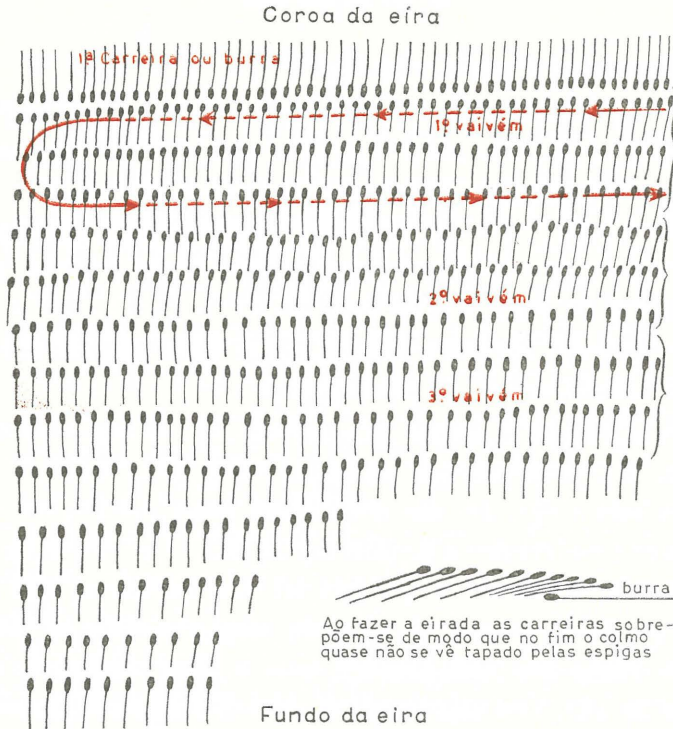 Coroa da eira
1ª Carreira ou burra
1º vaivém
2º vaivém
3º vaivém
burra
Ao fazer a eirada as carreiras sobre-
põem-se de modo que no fim o colmo
quase não se vê tapado pelas espigas
Fundo da eira